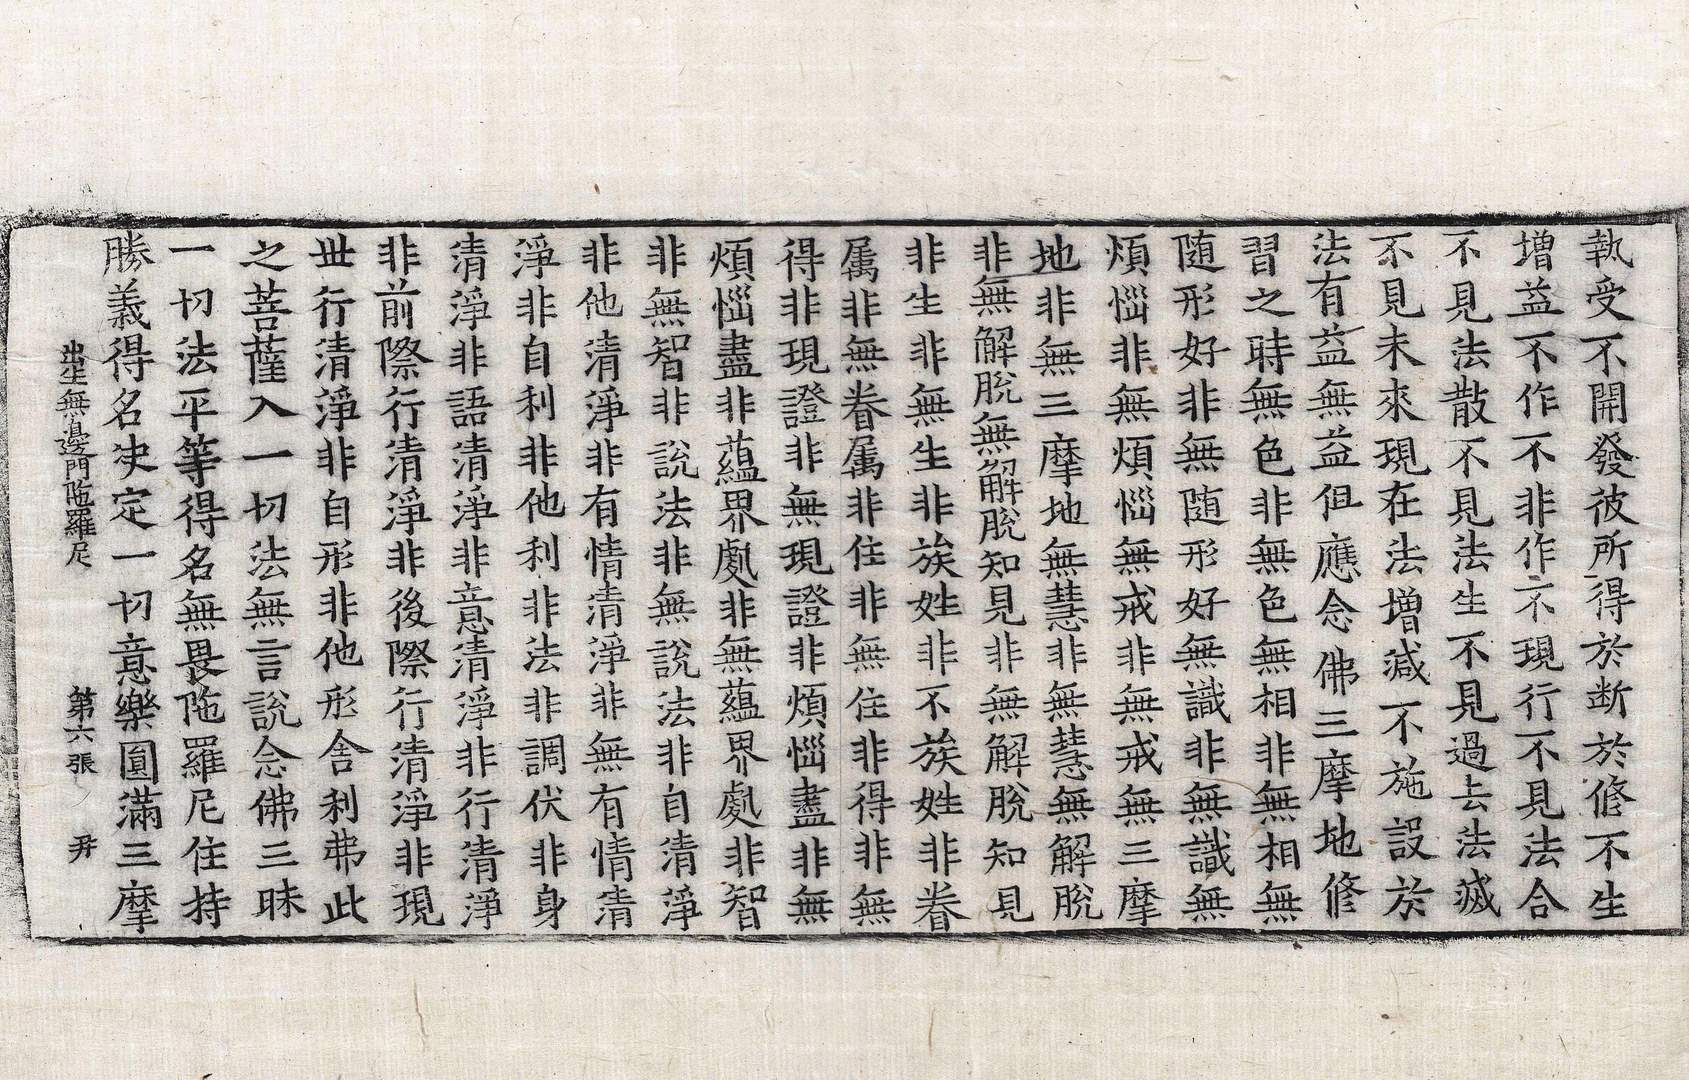 執受不開發彼所得於断於修不生
増益不作不非作不現行不見法合
不見法散不見法生不見過去法滅
不見未來現在法増減不施設於
法有益無益但應念佛三摩地修
習之時無色非無色無相非無相無
随形好非無随形好無識非無識無
煩惱非無煩惱無戒非無戒無三摩
地非無三摩地無慧非無慧無解脫
非無解脫無解脫知見非無解脫知見
非生非無生非族姓非不族姓非眷
属非無眷属非住非無住非得非無
得非現證非無現證非煩惱盡非無
煩惱盡非蘊界處非無蘊界處非智
非無智非說法非無說法非自清淨
非他清淨非有情清淨非無有情清
淨非自利非他利非法非調伏非身
清淨非語清淨非意清淨非行清淨
非前際行清淨非後際行清淨非現
世行清淨非自形非他形舍利弗此
之菩薩入一切法無言說念佛三昧
一切法平等得名無畏陁羅尼住持
勝義得名决定一切意樂圓滿三摩
出生無邊門陁羅尼 第六張